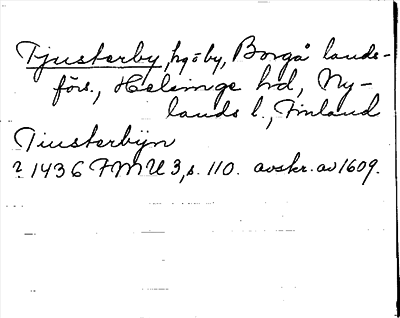 Tjusterby, hg o by, Borgå lands-
förs., Helsinge hd, Ny-
lands l., Finland
Tiusterbijn
? 1436 FMU 3, s. 110. avskr. av 1609.